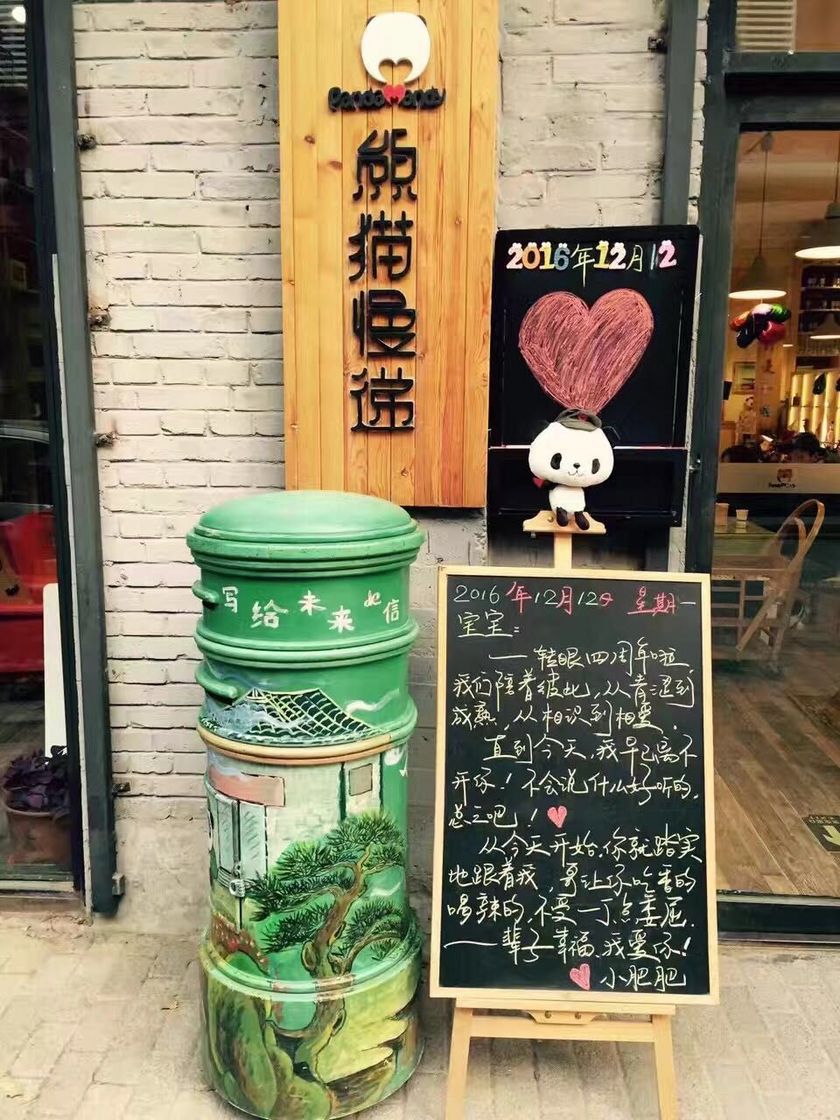 PandaMandy
熊猫慢递
2016年12月12
写给未来的信
2016年12月12日 星期一
宝宝:
一转眼四周年啦,
我们陪着彼此,从青涩到
成熟,从相识到相爱,
直到今天,我早已离不
开你!不会说什么好听的,
总之吧!
从今天开始,你就踏实
地跟着我,哥让你吃香的
喝辣的,不受一丁点委屈,
一辈子幸福,我爱你!
小肥肥